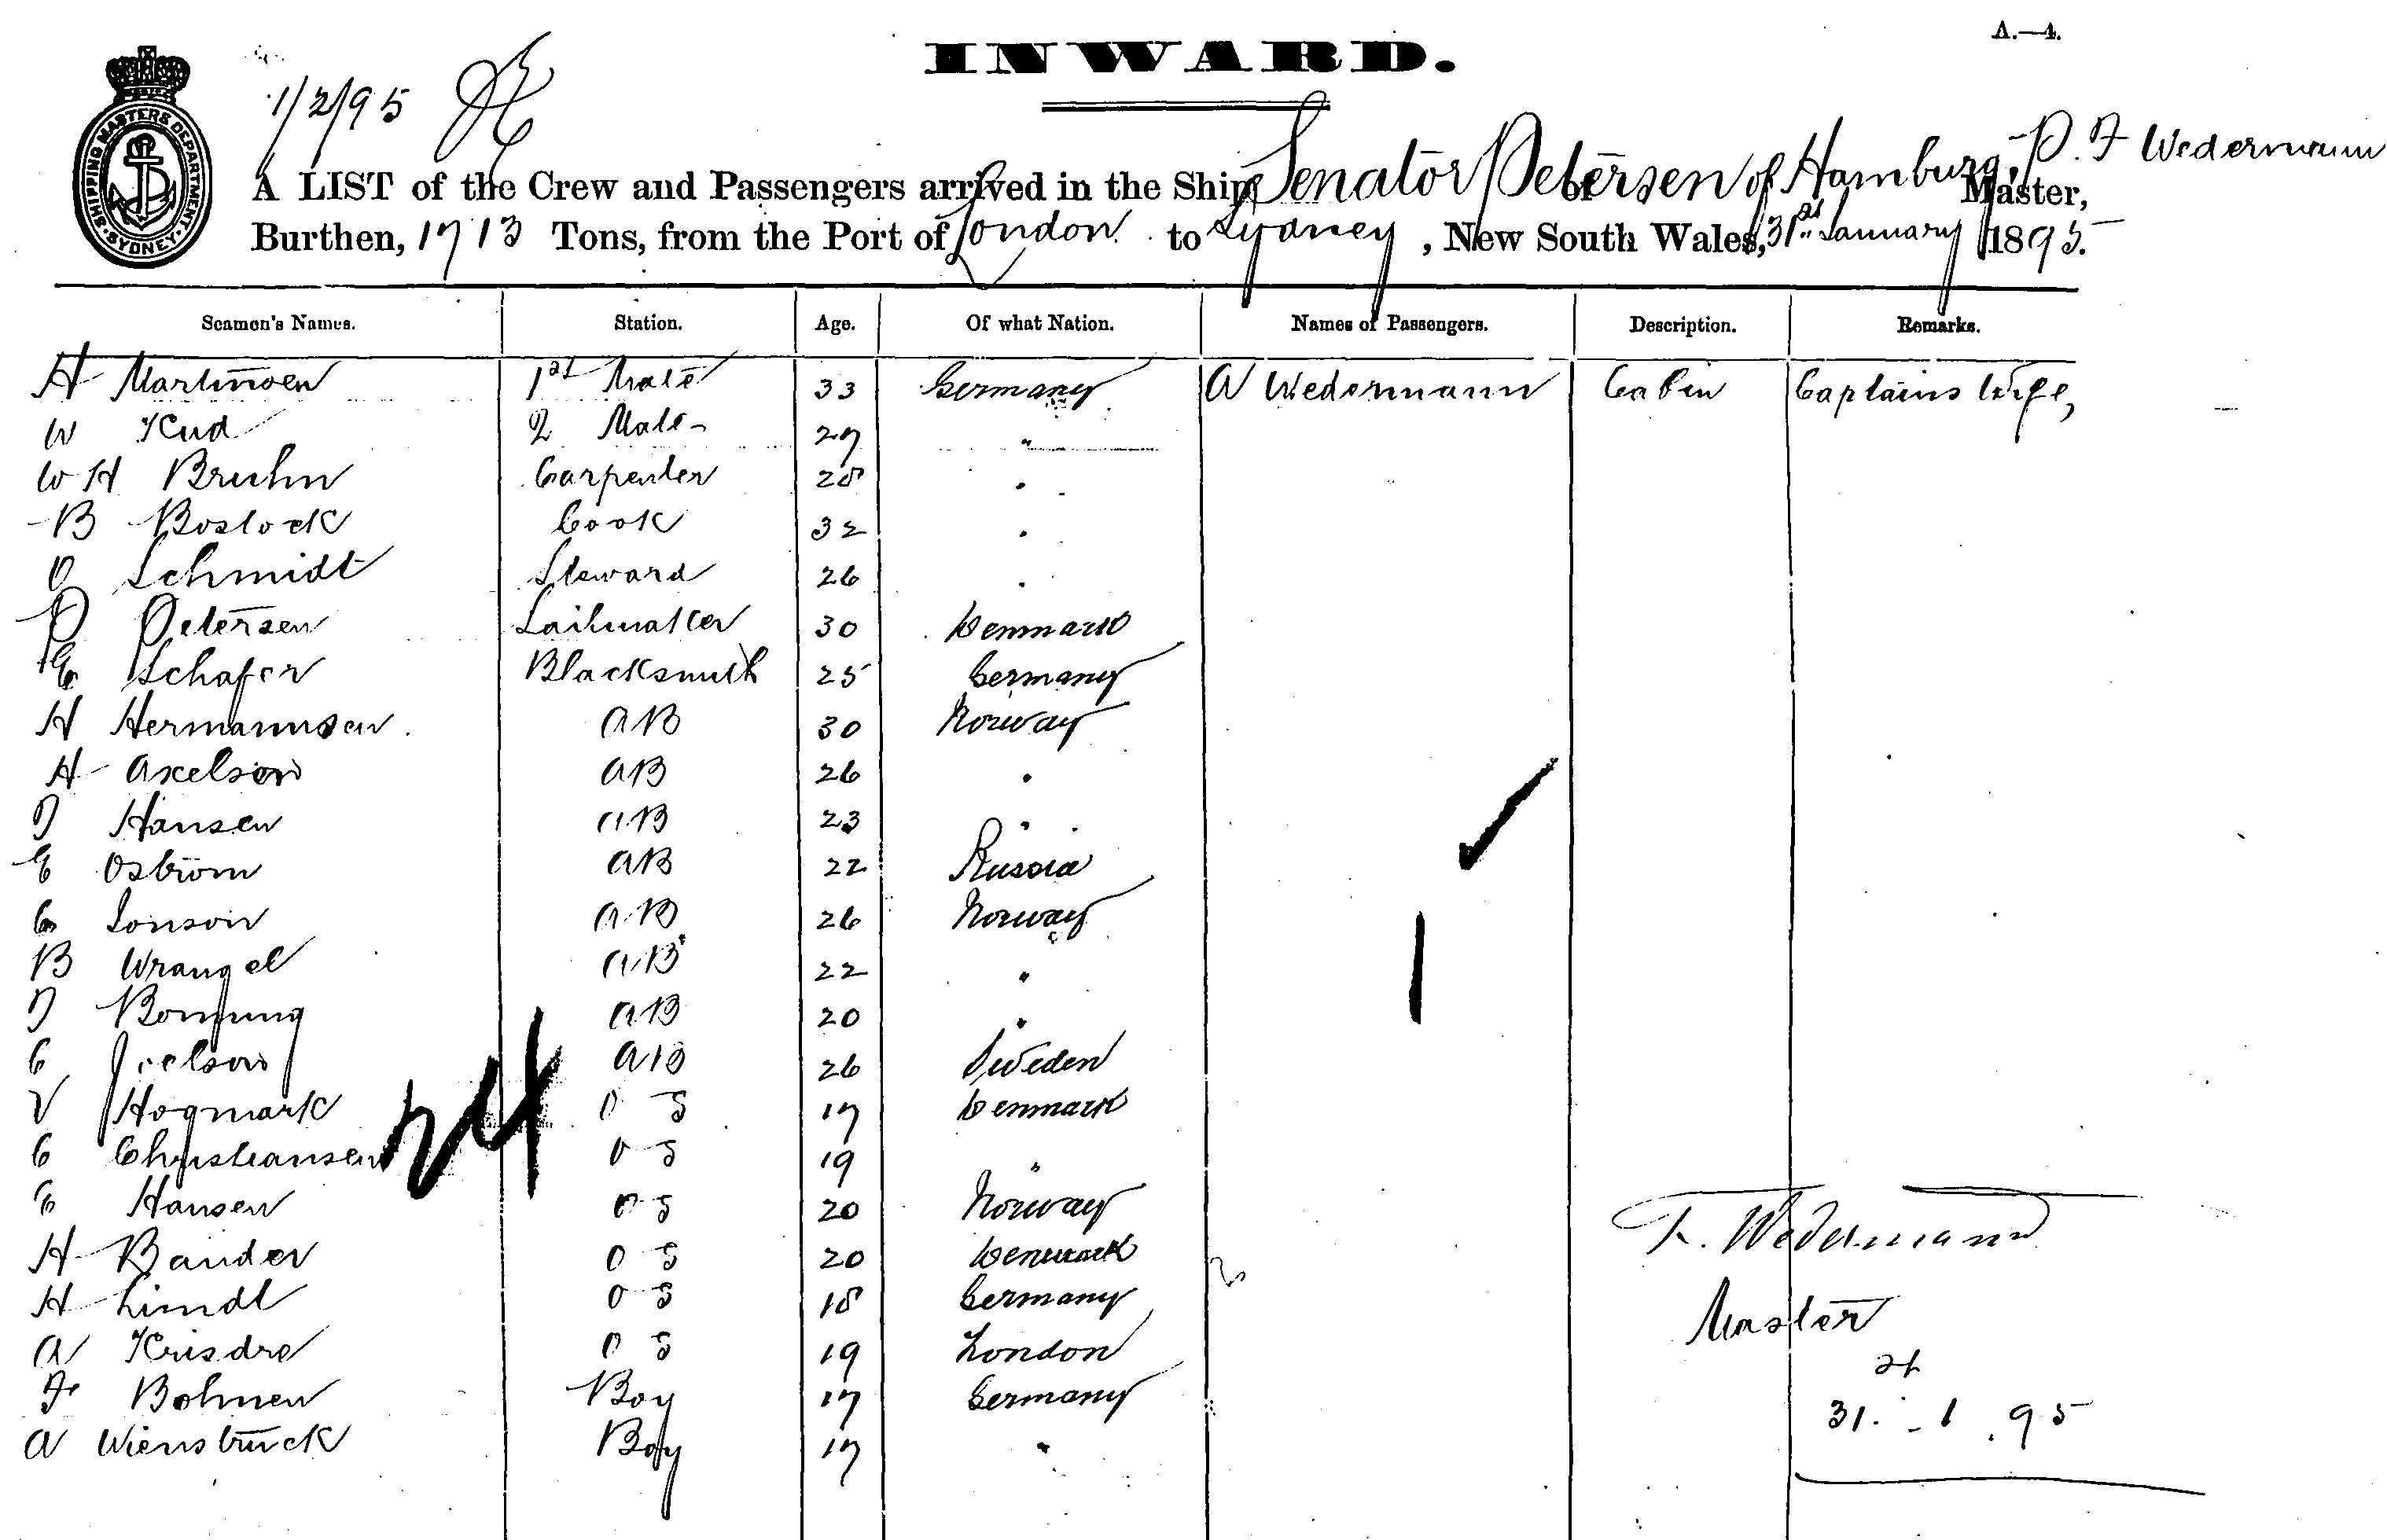 A.—4.
INWARD.
SHIPPING MASTERS DEPARTMENT · SYDNEY ·
1/2/95
A LIST of the Crew and Passengers arrived in the Ship Senator Petersen of Hamburg, P. F Wedermann Master,
Burthen, 1713 Tons, from the Port of London to Sydney, New South Wales, 31st January 1895.
Seamen's Names. Station. Age. Of what Nation. Names of Passengers. Description. Remarks.
H Martinsen 1st Mate 33 Germany A Wedermann Cabin Captains Wife,
W Kud 2 Mate 27 "
W H Bruhn Carpenter 28 "
B Bostock Cook 32 "
O Schmidt Steward 26 "
P Petersen Sailmaker 30 Denmark
E Schafer Blacksmith 25 Germany
H Hermannsen AB 30 Norway
H Axelson AB 26 "
J Hansen AB 23 "
E Ostrom AB 22 Russia
C Jonson AB 26 Norway
B Wrangel AB 22 "
J AB 20 "
C AB 26 Sweden
V Hogmark OS 17 Denmark
C Christiansen OS 19 "
E Hansen OS 20 Norway
H Bander OS 20 Denmark
H Lindt OS 18 Germany
A Krisdre OS 19 London
Fr Bohnen Boy 17 Germany
A Wiensbruck Boy 17 "
24
1
F. Wedermann
Master
31. 1. 95